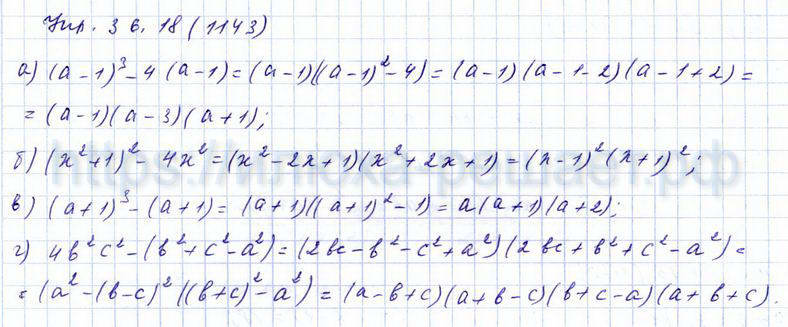 Упр. 36.18 (1143)
а) (a-1)³-4(a-1)=(a-1)((a-1)²-4)=(a-1)(a-1-2)(a-1+2)=
=(a-1)(a-3)(a+1);
б) (x²+1)² 4x²=(x²-2x+1)(x²+2x+1)=(x-1)²(x+1)²;
в) (a+1)³-(a+1)=(a+1)((a+1)²-1)=a(a+1)(a+2);
г) 4b²c²-(b²+c²-a²)=(2bc-b²-c²+a²)(2bc+b²+c²-a²)=
=(a²-(b-c)²)((b+c)²-a²)=(a-b+c)(a+b-c)(b+c-a)(a+b+c).